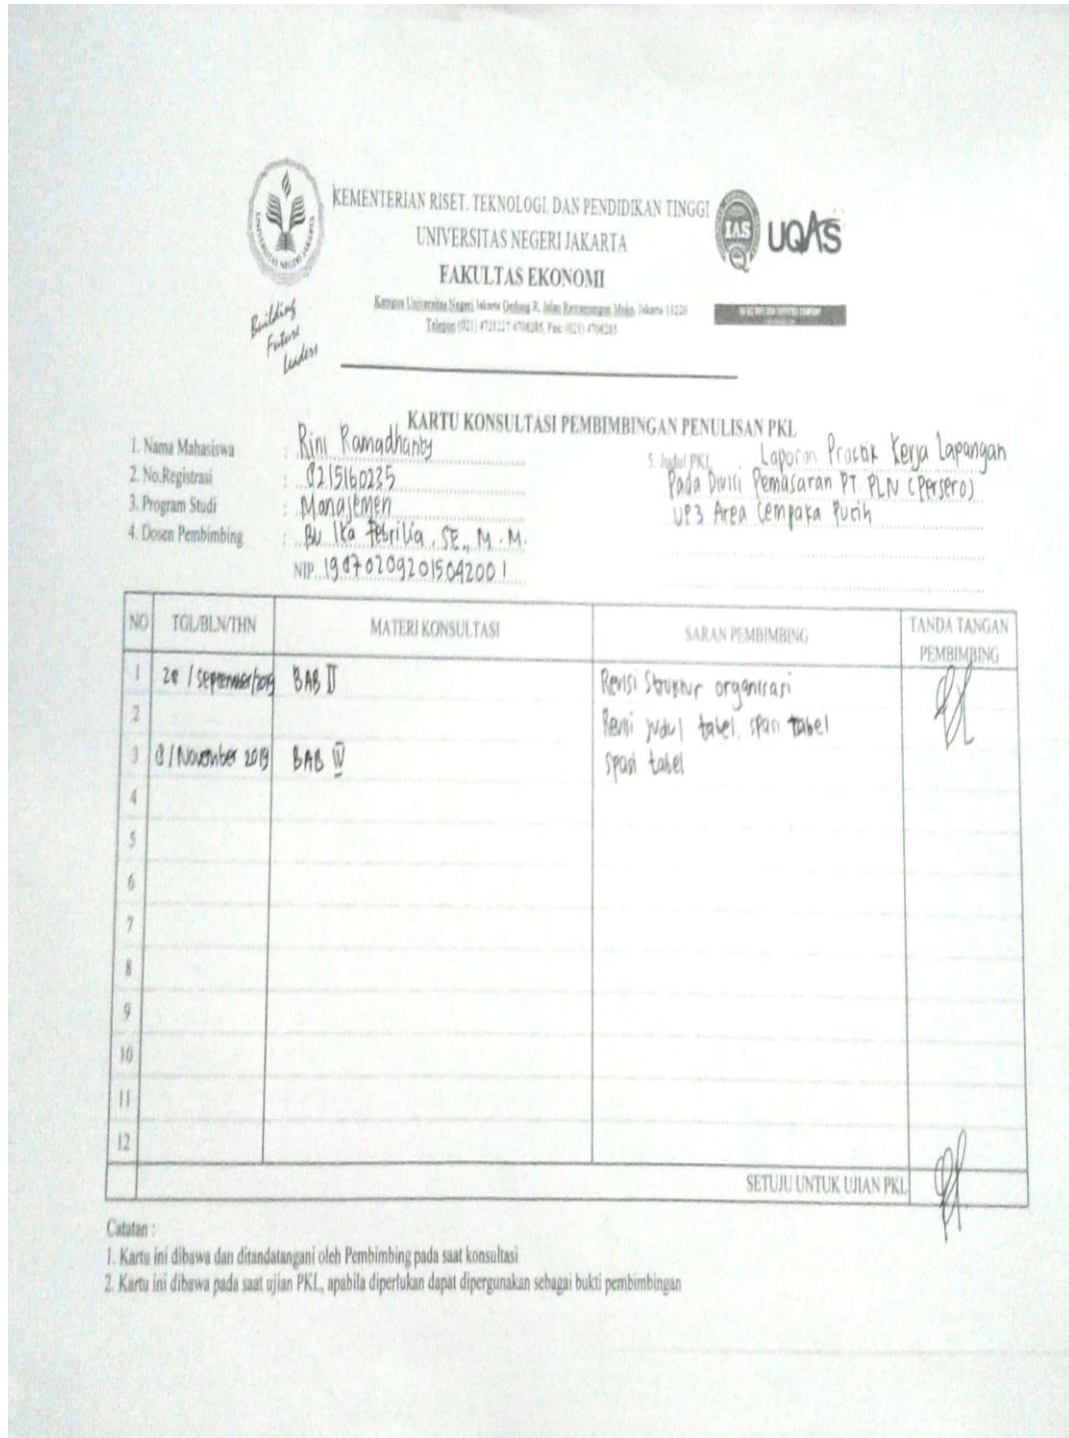 KEMENTERIAN RISET, TEKNOLOGI, DAN PENDIDIKAN TINGGI
UNIVERSITAS NEGERI JAKARTA
FAKULTAS EKONOMI
Kampus Universitas Negeri Jakarta Gedung R, Jalan Rawamangun Muka, Jakarta 13220
Telepon (021) 4721227/4706285, Fax: (021) 4706285
UNIVERSITAS NEGERI JAKARTA
Building
Future
Leaders
IAS
UQAS
KARTU KONSULTASI PEMBIMBINGAN PENULISAN PKL
1. Nama Mahasiswa : Rini Ramadhanty
2. No.Registrasi : 8215160235
3. Program Studi : Manajemen
4. Dosen Pembimbing : Bu Ika Febrilia, SE., M.M.
NIP. 198702092015042001
5. Judul PKL Laporan Praktik Kerja Lapangan
Pada Divisi Pemasaran PT. PLN (Persero)
UP3 Area Cempaka Putih
NO TGL/BLN/THN MATERI KONSULTASI SARAN PEMBIMBING TANDA TANGAN PEMBIMBING
1 28 / September/2019 BAB II Revisi Struktur organisasi
2 Revisi judul tabel, spasi tabel
3 8 / November 2019 BAB IV spasi tabel
4
5
6
7
8
9
10
11
12
SETUJU UNTUK UJIAN PKL
Catatan :
1. Kartu ini dibawa dan ditandatangani oleh Pembimbing pada saat konsultasi
2. Kartu ini dibawa pada saat ujian PKL, apabila diperlukan dapat dipergunakan sebagai bukti pembimbingan